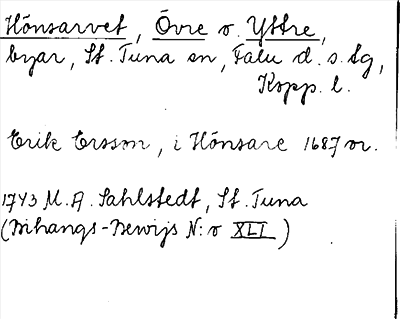 Hönsarvet, Övre o. Yttre,
byar, St. Tuna sn, Falu d. s. lg,
Kopp. l.
Erik Ersson, i Hönsare 1687 or.
1743 M. A. Sahlstedt, St. Tuna
(Bihangs-Bewijs N:o XLI)